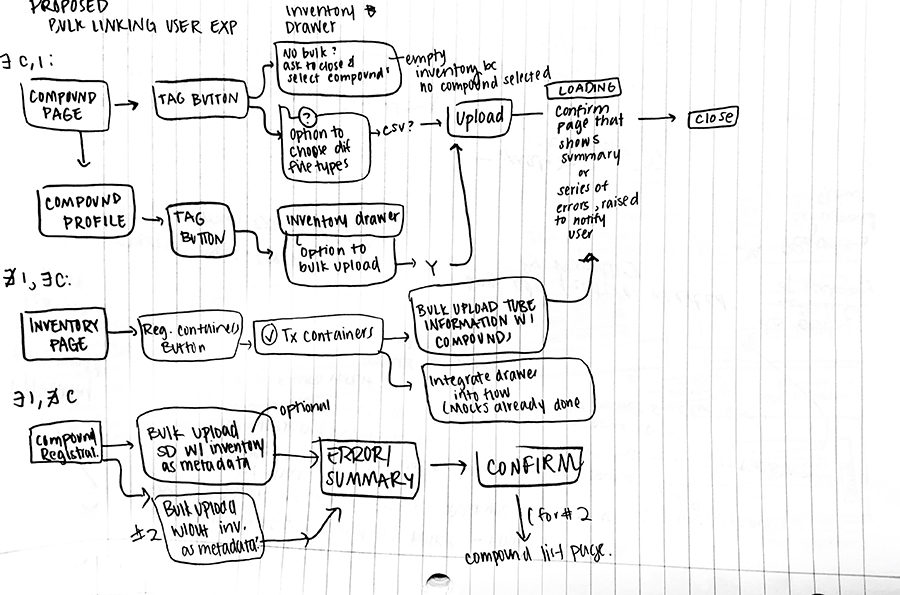 PROPOSED
BULK LINKING USER EXP
Inventory
Drawer
∃ C, I:
COMPOUND
PAGE
TAG BUTTON
NO bulk?
ask to close &
select compound
empty
inventory bc
no compound selected
?
Option to
choose dif
file types
csv?
Upload
LOADING
Confirm
page that
shows
summary
or
series of
errors, raised
to notify
user
close
COMPOUND
PROFILE
TAG
BUTTON
Inventory drawer
Option to
bulk upload
Y
∄ I, ∃C:
INVENTORY
PAGE
Reg. containers
Button
Tx containers
BULK UPLOAD TUBE
INFORMATION W/
COMPOUNDS
Integrate drawer
into flow
(Mocks already done
∃ I, ∄ C
Compound
Registrat.
optional
BULK UPLOAD
SD W/ inventory
as metadata
#2
Bulk upload
w/out inv.
as metadata
ERROR/
SUMMARY
CONFIRM
(for #2
compound list page.